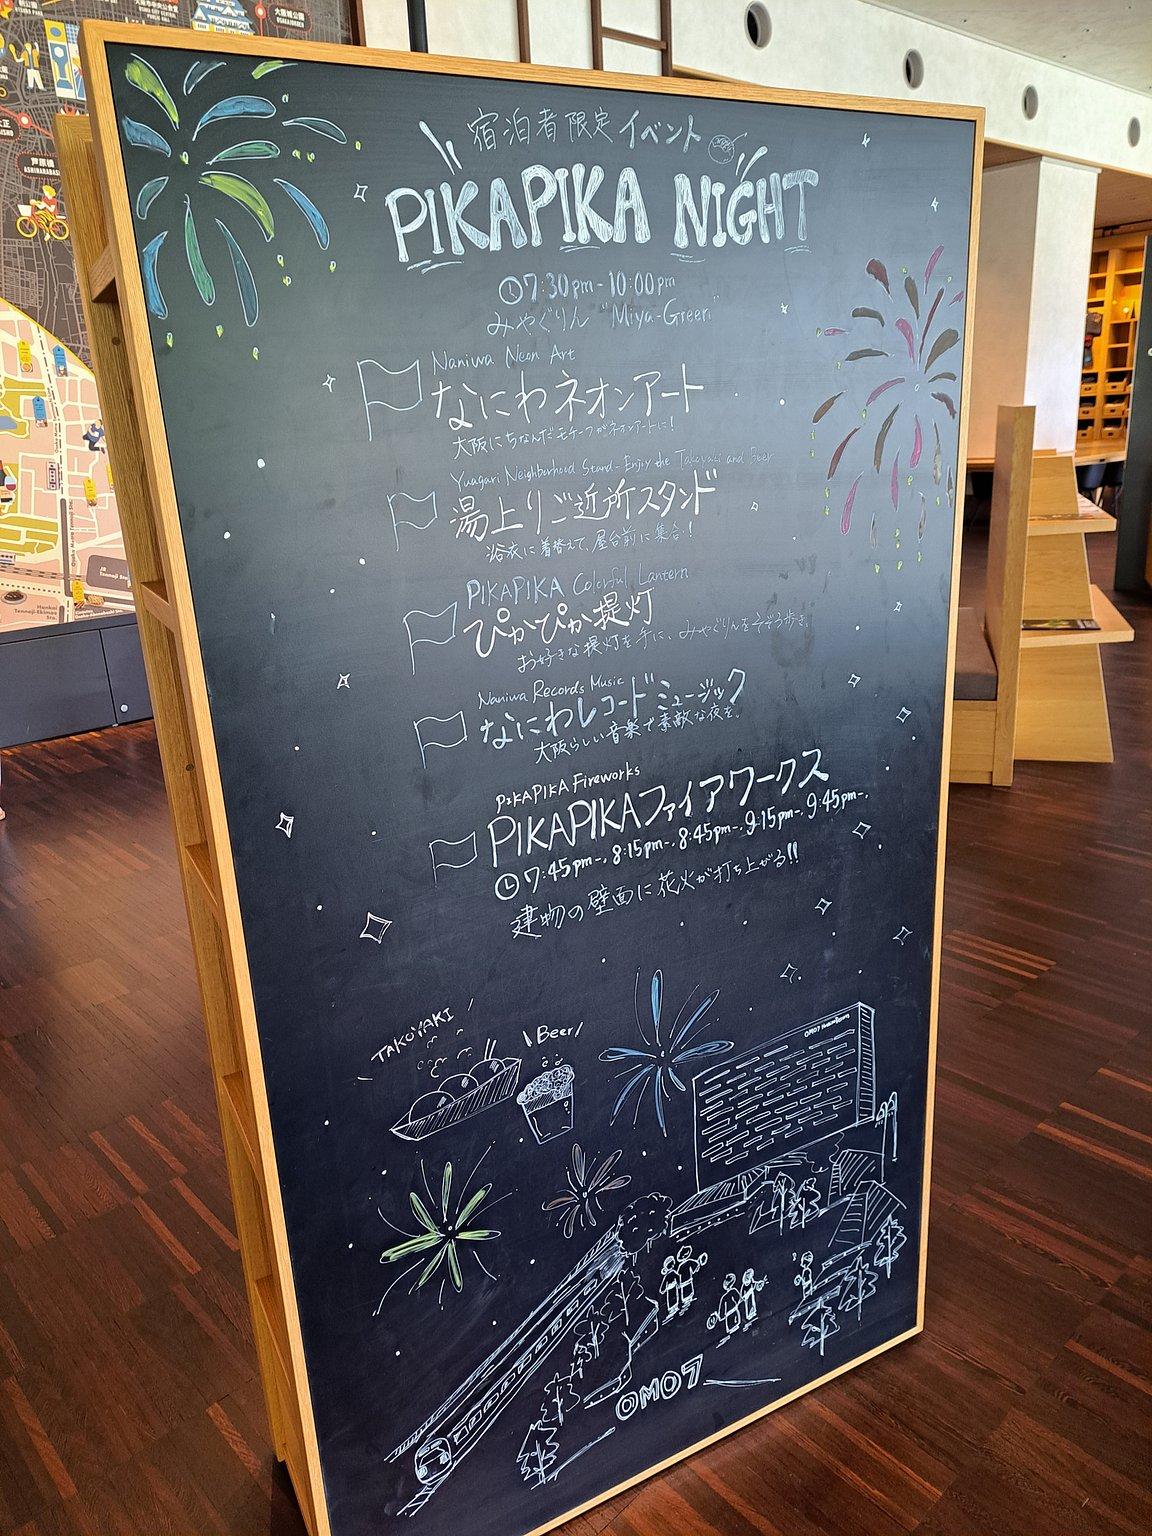 大阪市中央公会堂
大阪城公園
芦原橋
ASHIHARABASHI
宿泊者限定イベント
PIKAPIKA NIGHT
7:30pm-10:00pm
みやぐりん "Miya-Green"
Naniwa Neon Art
なにわネオンアート
大阪にちなんだモチーフがネオンアートに!
Yuagari Neighborhood Stand-Enjoy the Takoyaki and Beer
湯上りご近所スタンド
浴衣に着替えて、屋台前に集合!
PIKAPIKA Colorful Lantern
ぴかぴか提灯
お好きな提灯を手に、みやぐりんをそぞろ歩き。
Naniwa Records Music
なにわレコードミュージック
大阪らしい音楽で素敵な夜を。
PIKAPIKA Fireworks
PIKAPIKAファイアワークス
7:45pm-, 8:15pm-, 8:45pm-, 9:15pm-, 9:45pm-,
建物の壁面に花火が打ち上がる!!
TAKOYAKI
Beer
OMO7
OMO7